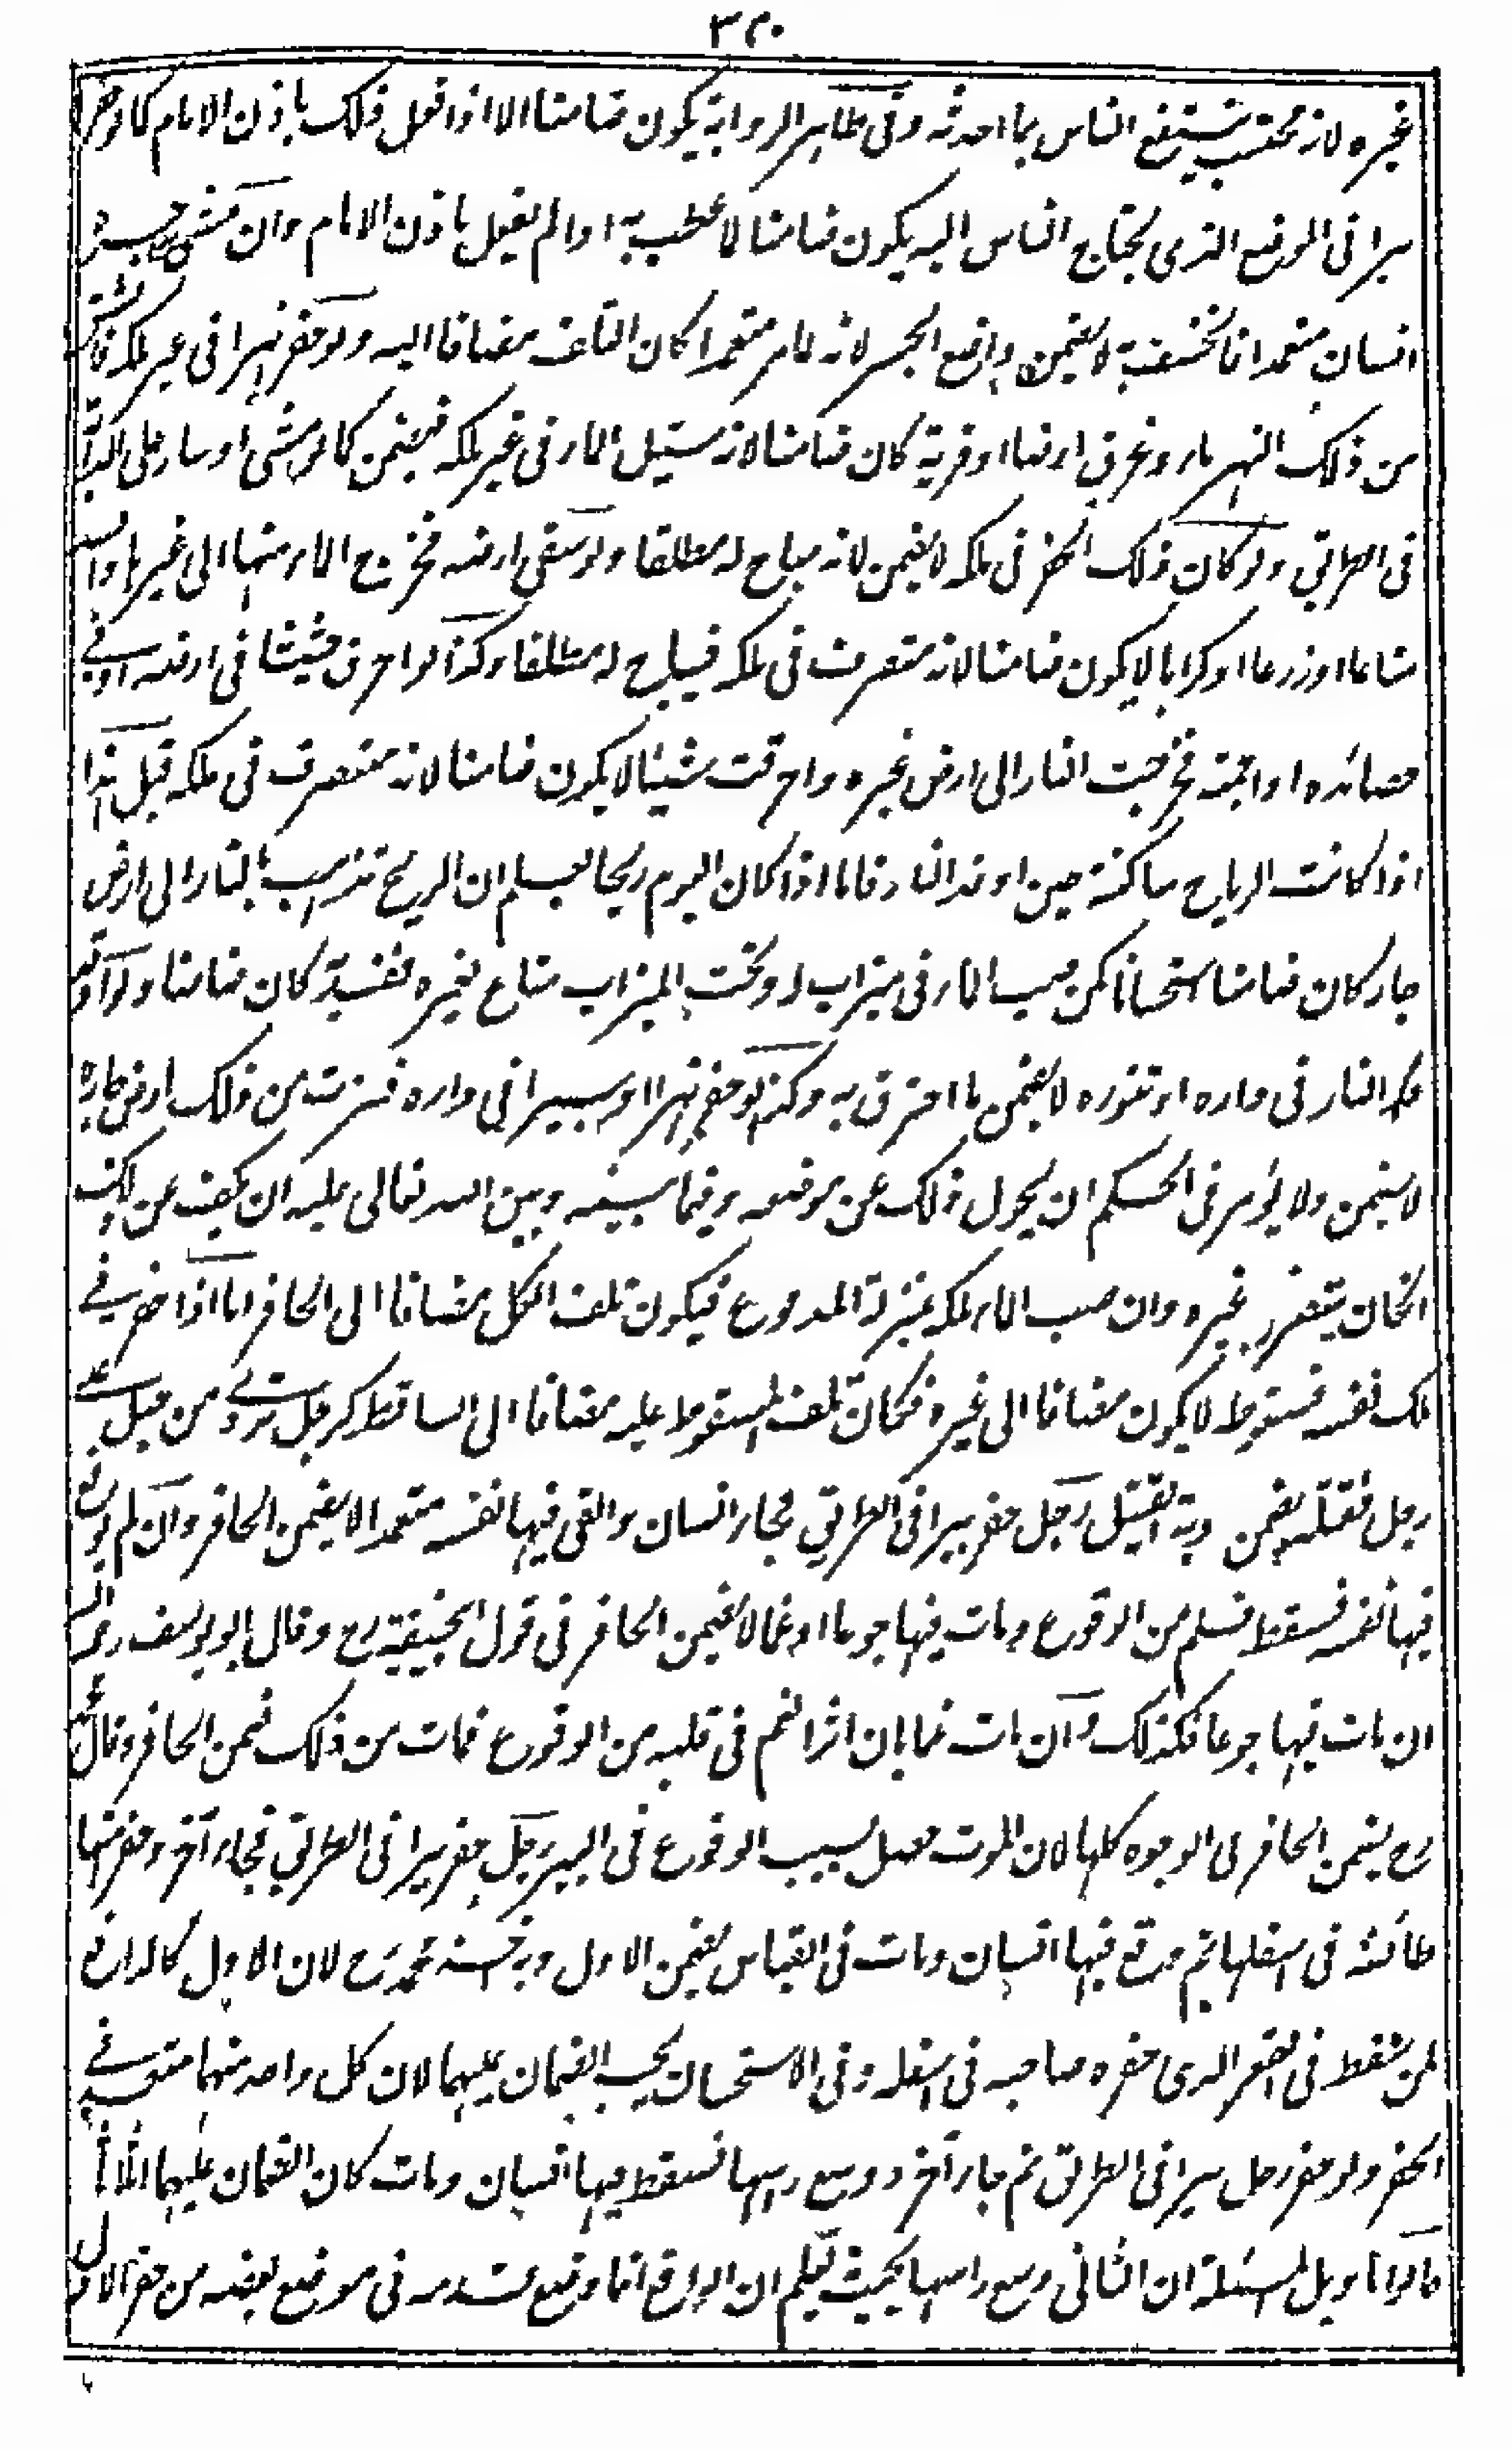 ٣٢٠
غيره لانه محتسب ينتفع الناس بما احدثه وفى ظاهر الرواية يكون ضامنا الا اذا فعل ذلك باذن الامام كما لو حفر
بيرا فى الموضع الذى يحتاج الناس اليه يكون ضامنا لما عطب به اذا لم يفعل باذن الامام وان مشى على جسره
انسان متعمدا فانخسف به لا يضمن واضع الجسر لانه لما مر متعمدا كان التلف مضافا اليه ولو حفر نهرا فى غير ملكه فانشق
من ذلك النهر ماء وغرق ارضا او قرية كان ضامنا لانه مسيل الماء فى غير ملكه فيضمن كما لو مشى او سار على الدابة
فى الطريق ولو كان ذلك الحفر فى ملكه لا يضمن لانه مباح له مطلقا ولو سقى ارضه فخرج الماء منها الى غيرها وافسد
متاعا او زرعا او كرابا لا يكون ضامنا لانه متصرف فى ملكه فيباح له مطلقا وكذا لو احرق حشيشا فى ارضه او فى
حصائده او اجمة فخرجت النار الى ارض غيره واحرقت شيئا لا يكون ضامنا لانه متصرف فى ملكه قيل هذا
اذا كانت الرياح ساكنة حين اوقد النار فاما اذا كان اليوم ريحا يعلم ان الريح تذهب بالنار الى ارض
جاره كان ضامنا استحسانا كمن صب الماء فى ميزاب له وتحت الميزاب متاع لغيره ففسد به كان ضامنا ولو اوقد
النار فى داره او تنوره لا يضمن ما احترق به وكذا لو حفر نهرا او بيرا فى داره فنزت من ذلك ارض جاره
لا يضمن ولا يؤمر فى الحكم ان يحول ذلك عن موضعه وفيما بينه وبين الله تعالى عليه ان يكف عن ذلك
ان كان يتضرر به غيره وان صب الماء فى ملكه بمنزلة المدفوع فيكون تلف الكل مضافا الى الحافر اما اذا حفر فى
ملك نفسه فسقوطه لا يكون مضافا الى غيره فكان تلف المسقوط عليه مضافا الى الساقط كرجل تردى من جبل على
رجل فقتله يضمن دية القتيل رجل حفر بيرا فى الطريق فجاء انسان والقى فيها نفسه متعمدا لا يضمن الحافر وان لم يوقع
فيها نفسه فسقط فسلم من الوقوع ومات فيها جوعا او غما لا يضمن الحافر فى قول ابي حنيفة رح وقال ابو يوسف رحمه الله
ان مات فيها جوعا فكذلك وان مات غما بان اثر الغم فى قلبه من الوقوع فمات من ذلك ضمن الحافر وقال محمد
رح يضمن الحافر فى الوجوه كلها لان الموت حصل بسبب الوقوع فى البير رجل حفر بيرا فى الطريق فجاء آخر وحفر منها
طائفة فى اسفلها ثم وقع فيها انسان ومات فى القياس يضمن الاول وبه اخذ محمد رح لان الاول كالدافع
لمن سقط فى القعر الذى حفره صاحبه فى اسفله وفى الاستحسان يجب الضمان عليهما لان كل واحد منهما متعد فى
الحفر ولو حفر رجل بيرا فى الطريق ثم جاء آخر ووسع راسها فسقط فيها انسان ومات كان الضمان عليهما اثلاثا
قالوا تاويل المسئلة ان الثانى وسع راسها بحيث يعلم ان الواقع انما وضع قدمه فى موضع بعضه من حفر الاول